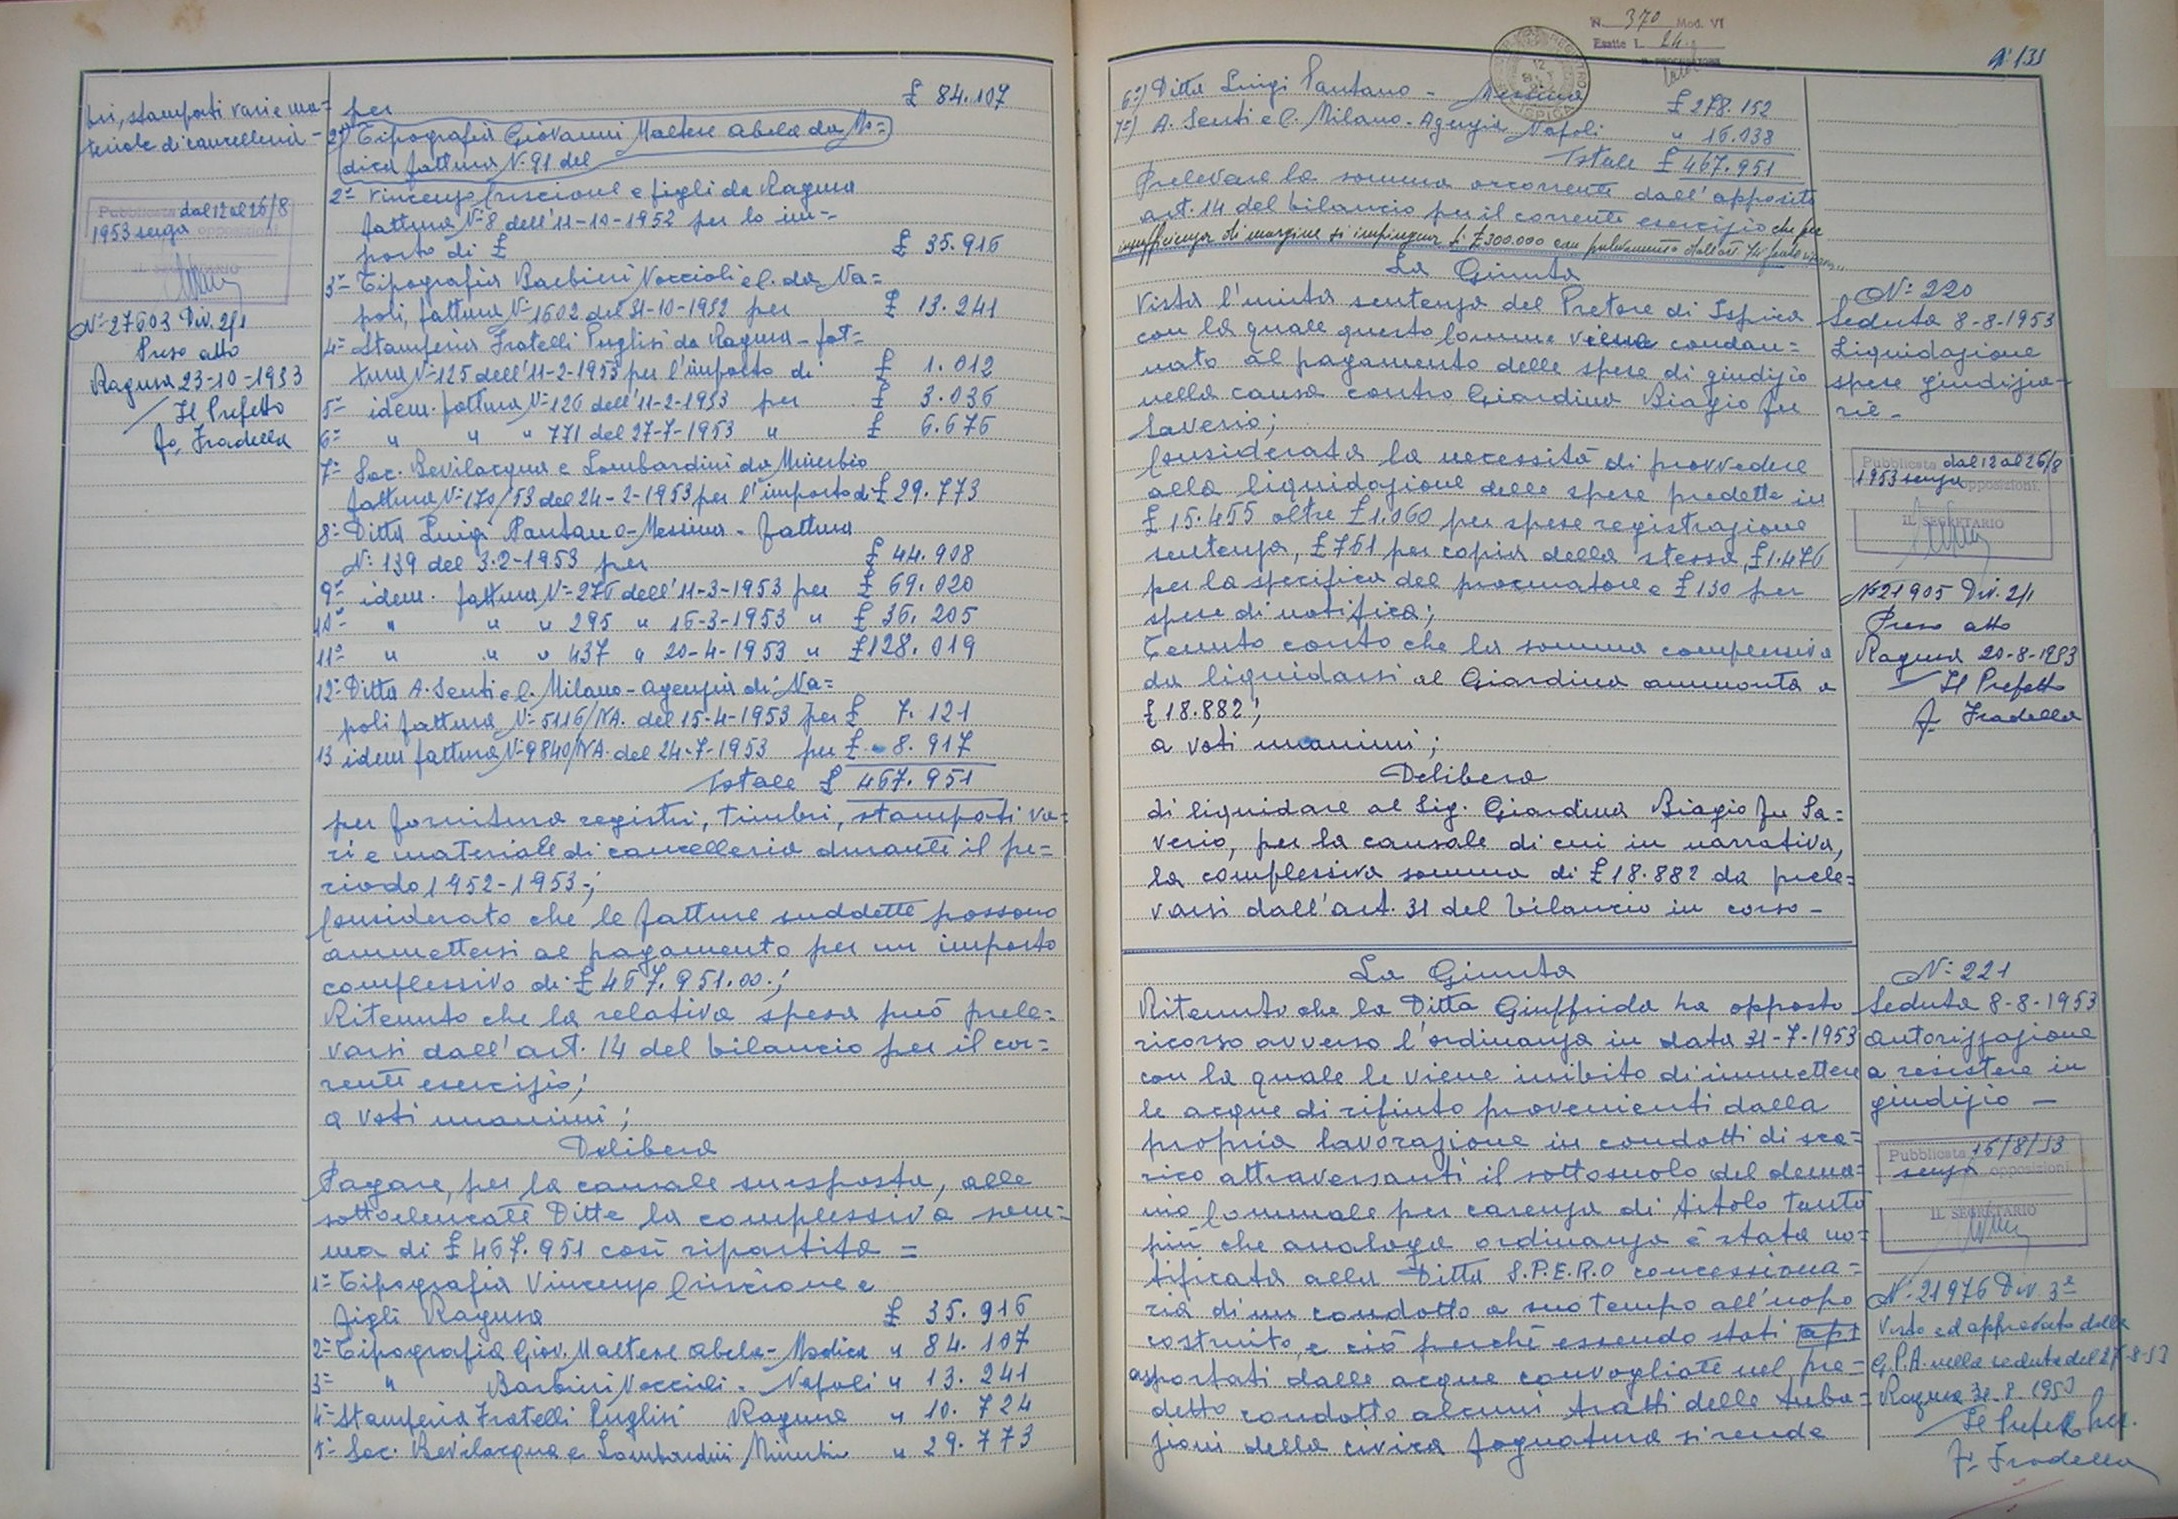 bri, stampati vari e ma=
teriale di cancelleria -
Pubblicata dal 12 al 26/8
1953 senza opposizioni
IL SEGRETARIO
N° 27603 Div. 2/1
Preso atto
Ragusa 23-10-1953
Il Prefetto
Fo Fradella
per £ 84.107
2°) Tipografia Giovanni Maltese Abela da Mo=
dica fattura N° 91 del
2° Vincenzo Criscione e figli da Ragusa
fattura N° 8 dell'11-10-1952 per lo im=
porto di £ £ 35.916
3° Tipografia Barbieri Noccioli e C. da Na=
poli, fattura N° 1602 del 31-10-1952 per £ 13.241
4° Stamperia Fratelli Puglisi da Ragusa - fat=
tura N° 125 dell'11-2-1953 per l'importo di £ 1.012
5° idem. fattura N° 126 dell'11-2-1953 per £ 3.036
6° " " " 771 del 27-7-1953 " £ 6.676
7° Soc. Bevilacqua e Lombardini da Minerbio
fattura N° 179/53 del 24-2-1953 per l'importo di £ 29.773
8° Ditta Luigi Pantano - Messina - fattura
N° 139 del 3-2-1953 per £ 44.908
9° idem. fattura N° 276 dell'11-3-1953 per £ 69.020
10° " " " 295 " 16-3-1953 " £ 36.205
11° " " " 437 " 20-4-1953 " £ 128.019
12° Ditta A. Senti e C. Milano - Agenzia di Na=
poli fattura N° 5116/NA. del 15-4-1953 per £ 7.121
13 idem fattura N° 9840/NA. del 24-7-1953 per £ 8.917
Totale £ 467.951
per fornitura registri, timbri, stampati va=
ri e materiale di cancelleria durante il pe=
riodo 1952-1953;
Considerato che le fatture suddette possono
ammettersi al pagamento per un importo
complessivo di £ 467.951.00;
Ritenuto che la relativa spesa può prele=
varsi dall'art. 14 del bilancio per il cor=
rente esercizio;
a voti unanimi;
Delibera
Pagare, per la causale suesposta, alle
sottoelencate Ditte la complessiva som=
ma di £ 467.951 così ripartita =
1° Tipografia Vincenzo Criscione e
figli Ragusa £ 35.916
2° Tipografia Giov. Maltese Abela - Modica " 84.107
3° " Barbieri Noccioli - Napoli " 13.241
4° Stamperia Fratelli Puglisi Ragusa " 10.724
5° Soc. Bevilacqua e Lombardini Minerbio " 29.773
N. 370 Mod. VI
Esatte L. 24
N° 131
6°) Ditta Luigi Pantano - Messina £ 278.152
7°) A. Senti e C. Milano - Agenzia Napoli " 16.038
Totale £ 467.951
Prelevare la somma occorrente dall'apposito
art. 14 del bilancio per il corrente esercizio che per
insufficienza di margine si impingua di £ 300.000 con prelevamento dall'art. 74
La Giunta
Vista l'unita sentenza del Pretore di Ispica
con la quale questo Comune viene condan=
nato al pagamento delle spese di giudizio
nella causa contro Giardina Biagio fu
Saverio;
Considerata la necessità di provvedere
alla liquidazione delle spese predette in
£ 15.455 oltre £ 1.060 per spese registrazione
sentenza, £ 761 per copia della stessa, £ 1.476
per la specifica del procuratore e £ 130 per
spese di notifica;
Tenuto conto che la somma complessiva
da liquidarsi al Giardina ammonta a
£ 18.882;
a voti unanimi;
Delibera
di liquidare al Sig. Giardina Biagio fu Sa=
verio, per la causale di cui in narrativa,
la complessiva somma di £ 18.882 da prele=
varsi dall'art. 31 del bilancio in corso -
La Giunta
Ritenuto che la Ditta Giuffrida ha opposto
ricorso avverso l'ordinanza in data 31-7-1953
con la quale le viene inibito di immettere
le acque di rifiuto provenienti dalla
propria lavorazione in condotti di sca=
rico attraversanti il sottosuolo del dema=
nio Comunale per carenza di titolo tanto
più che analoga ordinanza è stata no=
tificata alla Ditta S.P.E.R.O concessiona=
ria di un condotto a suo tempo all'uopo
costruito, e ciò perché essendo stati
asportati dalle acque convogliate nel pre=
detto condotto alcuni tratti delle tuba=
zioni della civica fognatura si rende
N° 220
Seduta 8-8-1953
Liquidazione
spese giudizia-
rie -
Pubblicata dal 12 al 26/8
1953 senza opposizioni
IL SEGRETARIO
N° 21905 Div. 2/1
Preso atto
Ragusa 20-8-1953
Il Prefetto
F. Fradella
N° 221
Seduta 8-8-1953
Autorizzazione
a resistere in
giudizio -
Pubblicata 16/8/53
senza opposizioni
IL SEGRETARIO
N° 21976 Div. 3a
Visto ed approvato dalla
G.P.A. nella seduta del 27-8-53
Ragusa 31.8.1953
Il Prefetto Pres.
F. Fradella